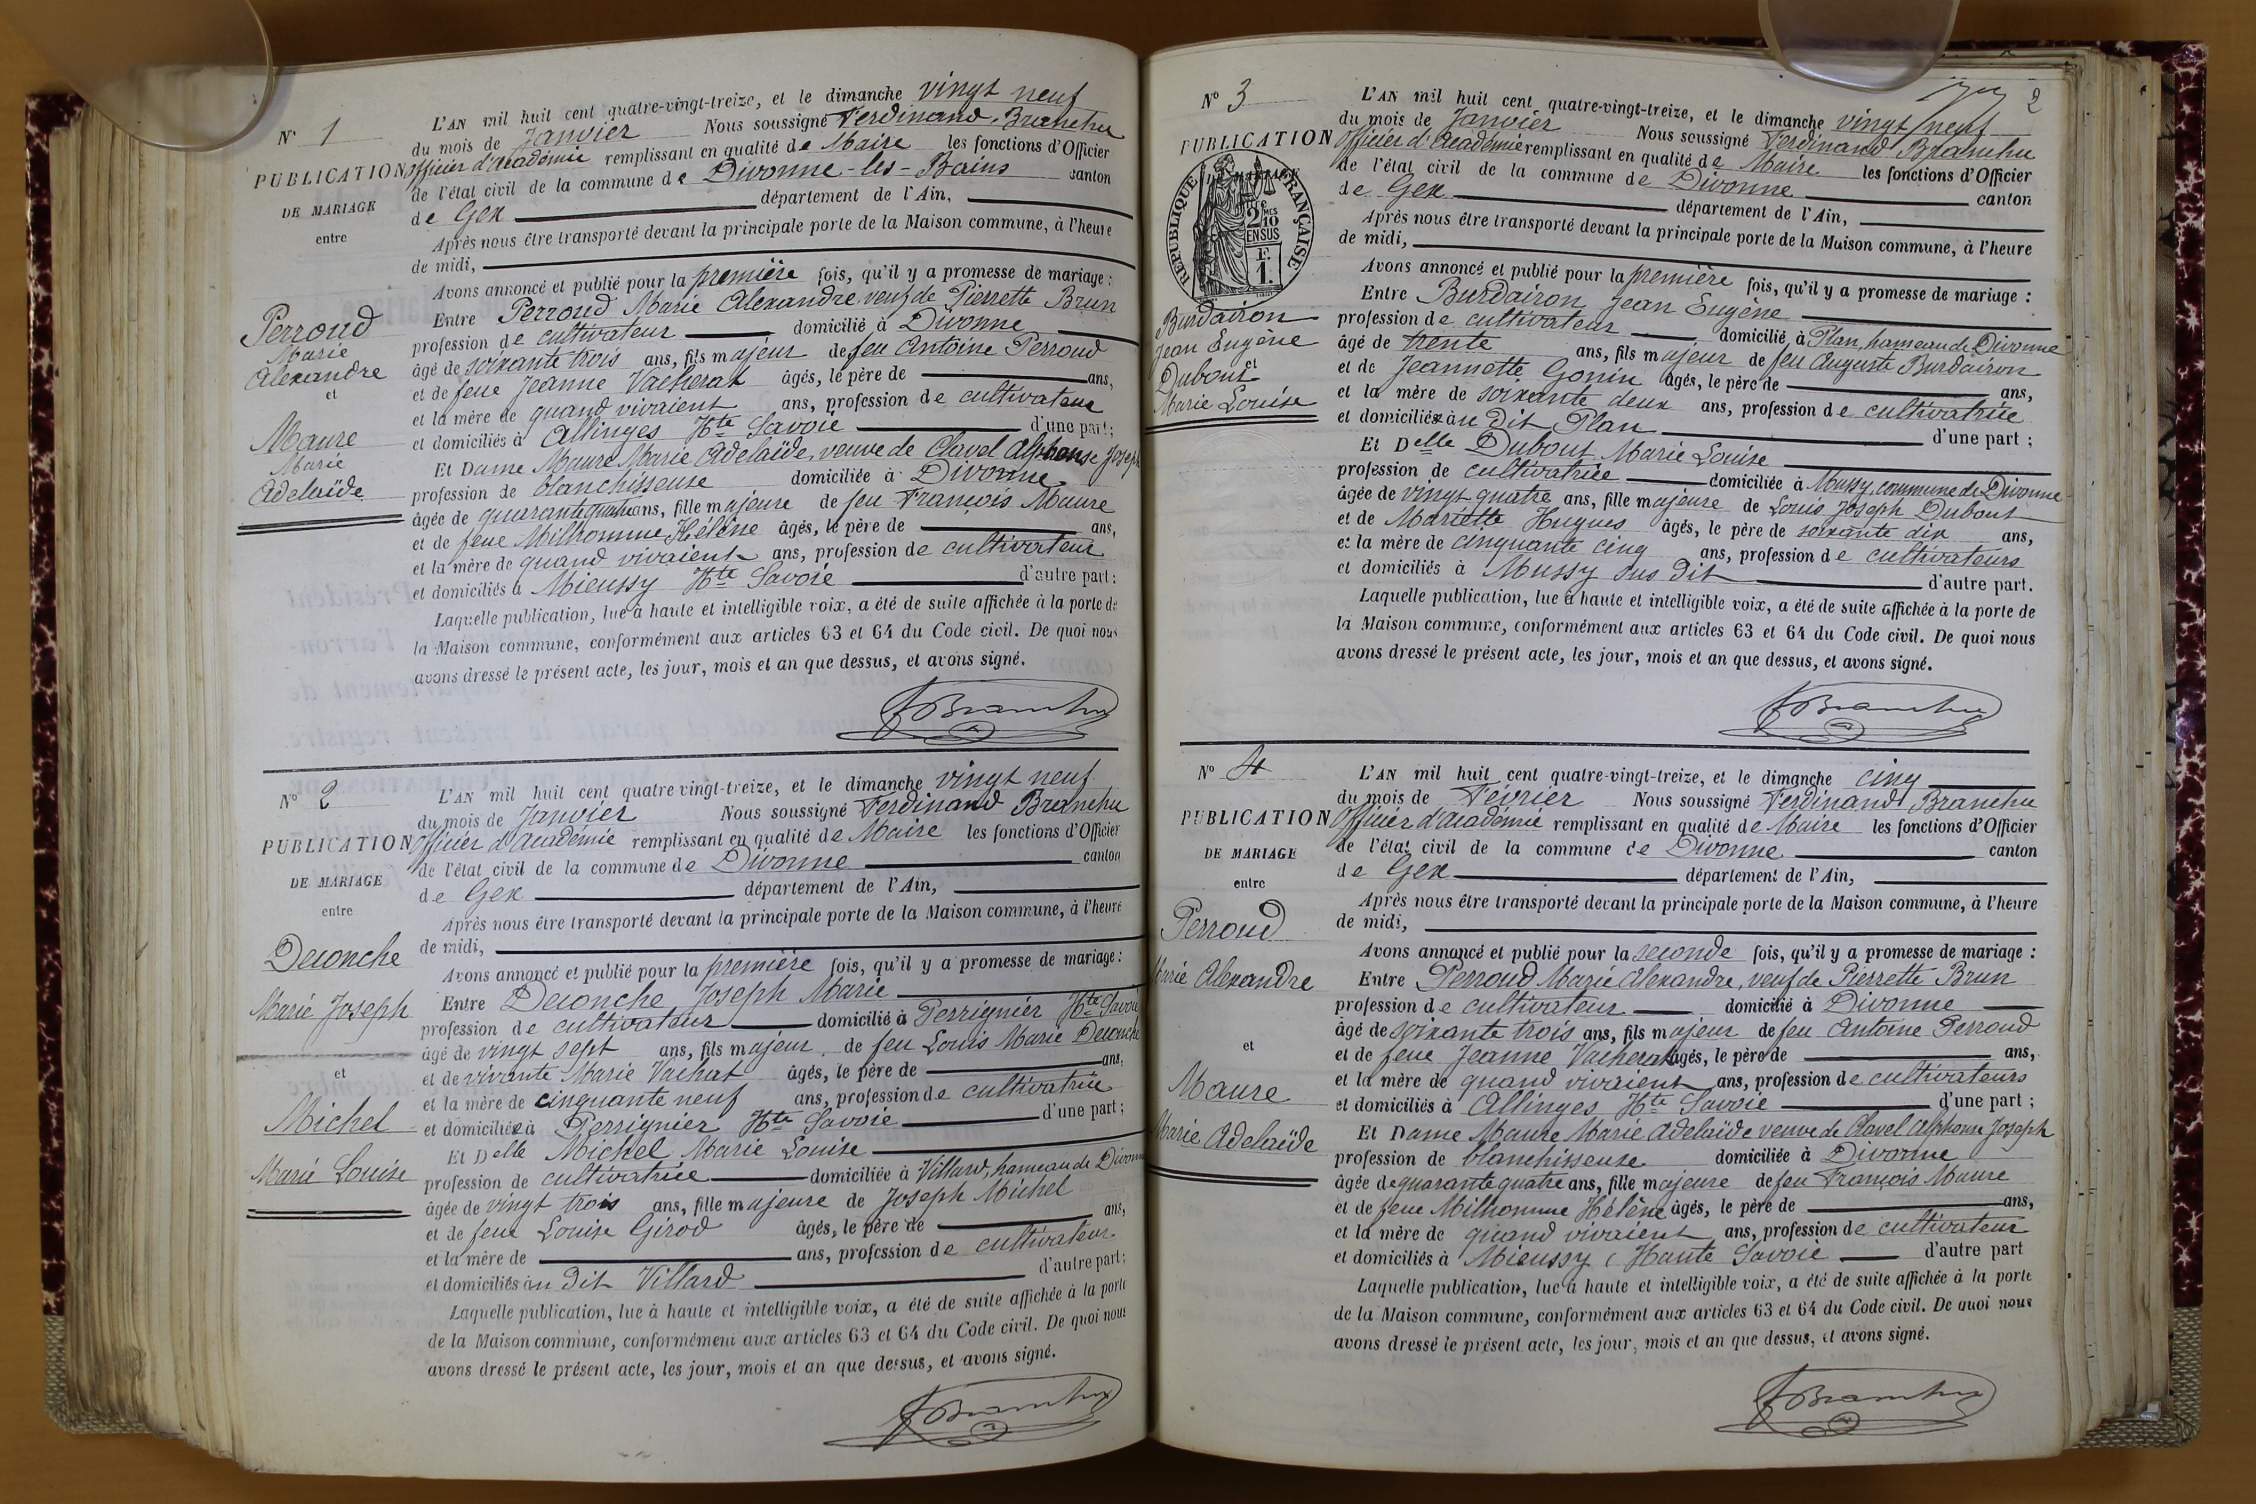 N° 1
PUBLICATION
DE MARIAGE
entre
Perroud
Marie
Alexandre
et
Maure
Marie
Adelaïde
L'AN mil huit cent quatre-vingt-treize, et le dimanche vingt neuf
du mois de Janvier Nous soussigné Ferdinand Branchu
officier d'académie remplissant en qualité de Maire les fonctions d'Officier
de l'état civil de la commune de Divonne-les-Bains canton
de Gex département de l'Ain,
Après nous être transporté devant la principale porte de la Maison commune, à l'heure
de midi,
Avons annoncé et publié pour la première fois, qu'il y a promesse de mariage :
Entre Perroud Marie Alexandre veuf de Pierrette Brun
profession de cultivateur domicilié à Divonne
âgé de soixante trois ans, fils majeur de feu Antoine Perroud
et de feue Jeanne Vacherat âgés, le père de ans,
et la mère de quand vivaient ans, profession de cultivateur
et domiciliés à Allinges Hte Savoie d'une part ;
Et Dame Maure Marie Adelaïde, veuve de Clavel Alphonse Joseph
profession de blanchisseuse domiciliée à Divonne
âgée de quarante quatre ans, fille majeure de feu François Maure
et de feue Milhomme Hélène âgés, le père de ans,
et la mère de quand vivaient ans, profession de cultivateur
et domiciliés à Mieussy Hte Savoie d'autre part :
Laquelle publication, lue à haute et intelligible voix, a été de suite affichée à la porte de
la Maison commune, conformément aux articles 63 et 64 du Code civil. De quoi nous
avons dressé le présent acte, les jour, mois et an que dessus, et avons signé.
FBranchu
N° 2
PUBLICATION
DE MARIAGE
entre
Deronche
Marie Joseph
et
Michel
Marie Louise
L'AN mil huit cent quatre vingt-treize, et le dimanche vingt neuf
du mois de Janvier Nous soussigné Ferdinand Branchu
officier d'académie remplissant en qualité de Maire les fonctions d'Officier
de l'état civil de la commune de Divonne canton
de Gex département de l'Ain,
Après nous être transporté devant la principale porte de la Maison commune, à l'heure
de midi,
Avons annoncé et publié pour la première fois, qu'il y a promesse de mariage :
Entre Deronche Joseph Marie
profession de cultivateur domicilié à Perrignier Hte Savoie
âgé de vingt sept ans, fils majeur de feu Louis Marie Deronche
et de vivante Marie Vachat âgés, le père de ans,
et la mère de cinquante neuf ans, profession de cultivatrice
et domiciliée à Perrignier Hte Savoie d'une part ;
Et Delle Michel Marie Louise
profession de cultivatrice domiciliée à Villard, hameau de Divonne
âgée de vingt trois ans, fille majeure de Joseph Michel
et de feue Louise Girod âgés, le père de ans,
et la mère de ans, profession de cultivateur
et domiciliés au dit Villard d'autre part ;
Laquelle publication, lue à haute et intelligible voix, a été de suite affichée à la porte
de la Maison commune, conformément aux articles 63 et 64 du Code civil. De quoi nous
avons dressé le présent acte, les jour, mois et an que dessus, et avons signé.
FBranchu
2
N° 3
PUBLICATION
RÉPUBLIQUE FRANÇAISE
2 MES
10
EN SUS
F.
1.
Burdairon
Jean Eugène
et
Dubout
Marie Louise
L'AN mil huit cent quatre-vingt-treize, et le dimanche vingt neuf
du mois de Janvier Nous soussigné Ferdinand Branchu
officier d'Académie remplissant en qualité de Maire les fonctions d'Officier
de l'état civil de la commune de Divonne canton
de Gex département de l'Ain,
Après nous être transporté devant la principale porte de la Maison commune, à l'heure
de midi,
Avons annoncé et publié pour la première fois, qu'il y a promesse de mariage :
Entre Burdairon Jean Eugène
profession de cultivateur domicilié à Plan, hameau de Divonne
âgé de trente ans, fils majeur de feu Auguste Burdairon
et de Jeannette Gonin âgés, le père de ans,
et la mère de soixante deux ans, profession de cultivatrice
et domiciliée au dit Plan d'une part ;
Et Delle Dubout Marie Louise
profession de cultivatrice domiciliée à Mussy, commune de Divonne
âgée de vingt quatre ans, fille majeure de Louis Joseph Dubout
et de Mariette Hugues âgés, le père de soixante dix ans,
et la mère de cinquante cinq ans, profession de cultivateurs
et domiciliés à Mussy sus dit d'autre part.
Laquelle publication, lue à haute et intelligible voix, a été de suite affichée à la porte de
la Maison commune, conformément aux articles 63 et 64 du Code civil. De quoi nous
avons dressé le présent acte, les jour, mois et an que dessus, et avons signé.
FBranchu
N° 4
PUBLICATION
DE MARIAGE
entre
Perroud
Marie Alexandre
et
Maure
Marie Adelaïde
L'AN mil huit cent quatre-vingt-treize, et le dimanche cinq
du mois de Février Nous soussigné Ferdinand Branchu
officier d'académie remplissant en qualité de Maire les fonctions d'Officier
de l'état civil de la commune de Divonne canton
de Gex département de l'Ain,
Après nous être transporté devant la principale porte de la Maison commune, à l'heure
de midi,
Avons annoncé et publié pour la seconde fois, qu'il y a promesse de mariage :
Entre Perroud Marie Alexandre, veuf de Pierrette Brun
profession de cultivateur domicilié à Divonne
âgé de soixante trois ans, fils majeur de feu Antoine Perroud
et de feue Jeanne Vacherat âgés, le père de ans,
et la mère de quand vivaient ans, profession de cultivateurs
et domiciliés à Allinges Hte Savoie d'une part ;
Et Dame Maure Marie Adelaïde veuve de Clavel Alphonse Joseph
profession de blanchisseuse domiciliée à Divonne
âgée de quarante quatre ans, fille majeure de feu François Maure
et de feue Milhomme Hélène âgés, le père de ans,
et la mère de quand vivaient ans, profession de cultivateur
et domiciliés à Mieussy, Haute Savoie d'autre part
Laquelle publication, lue à haute et intelligible voix, a été de suite affichée à la porte
de la Maison commune, conformément aux articles 63 et 64 du Code civil. De quoi nous
avons dressé le présent acte, les jour, mois et an que dessus, et avons signé.
FBranchu